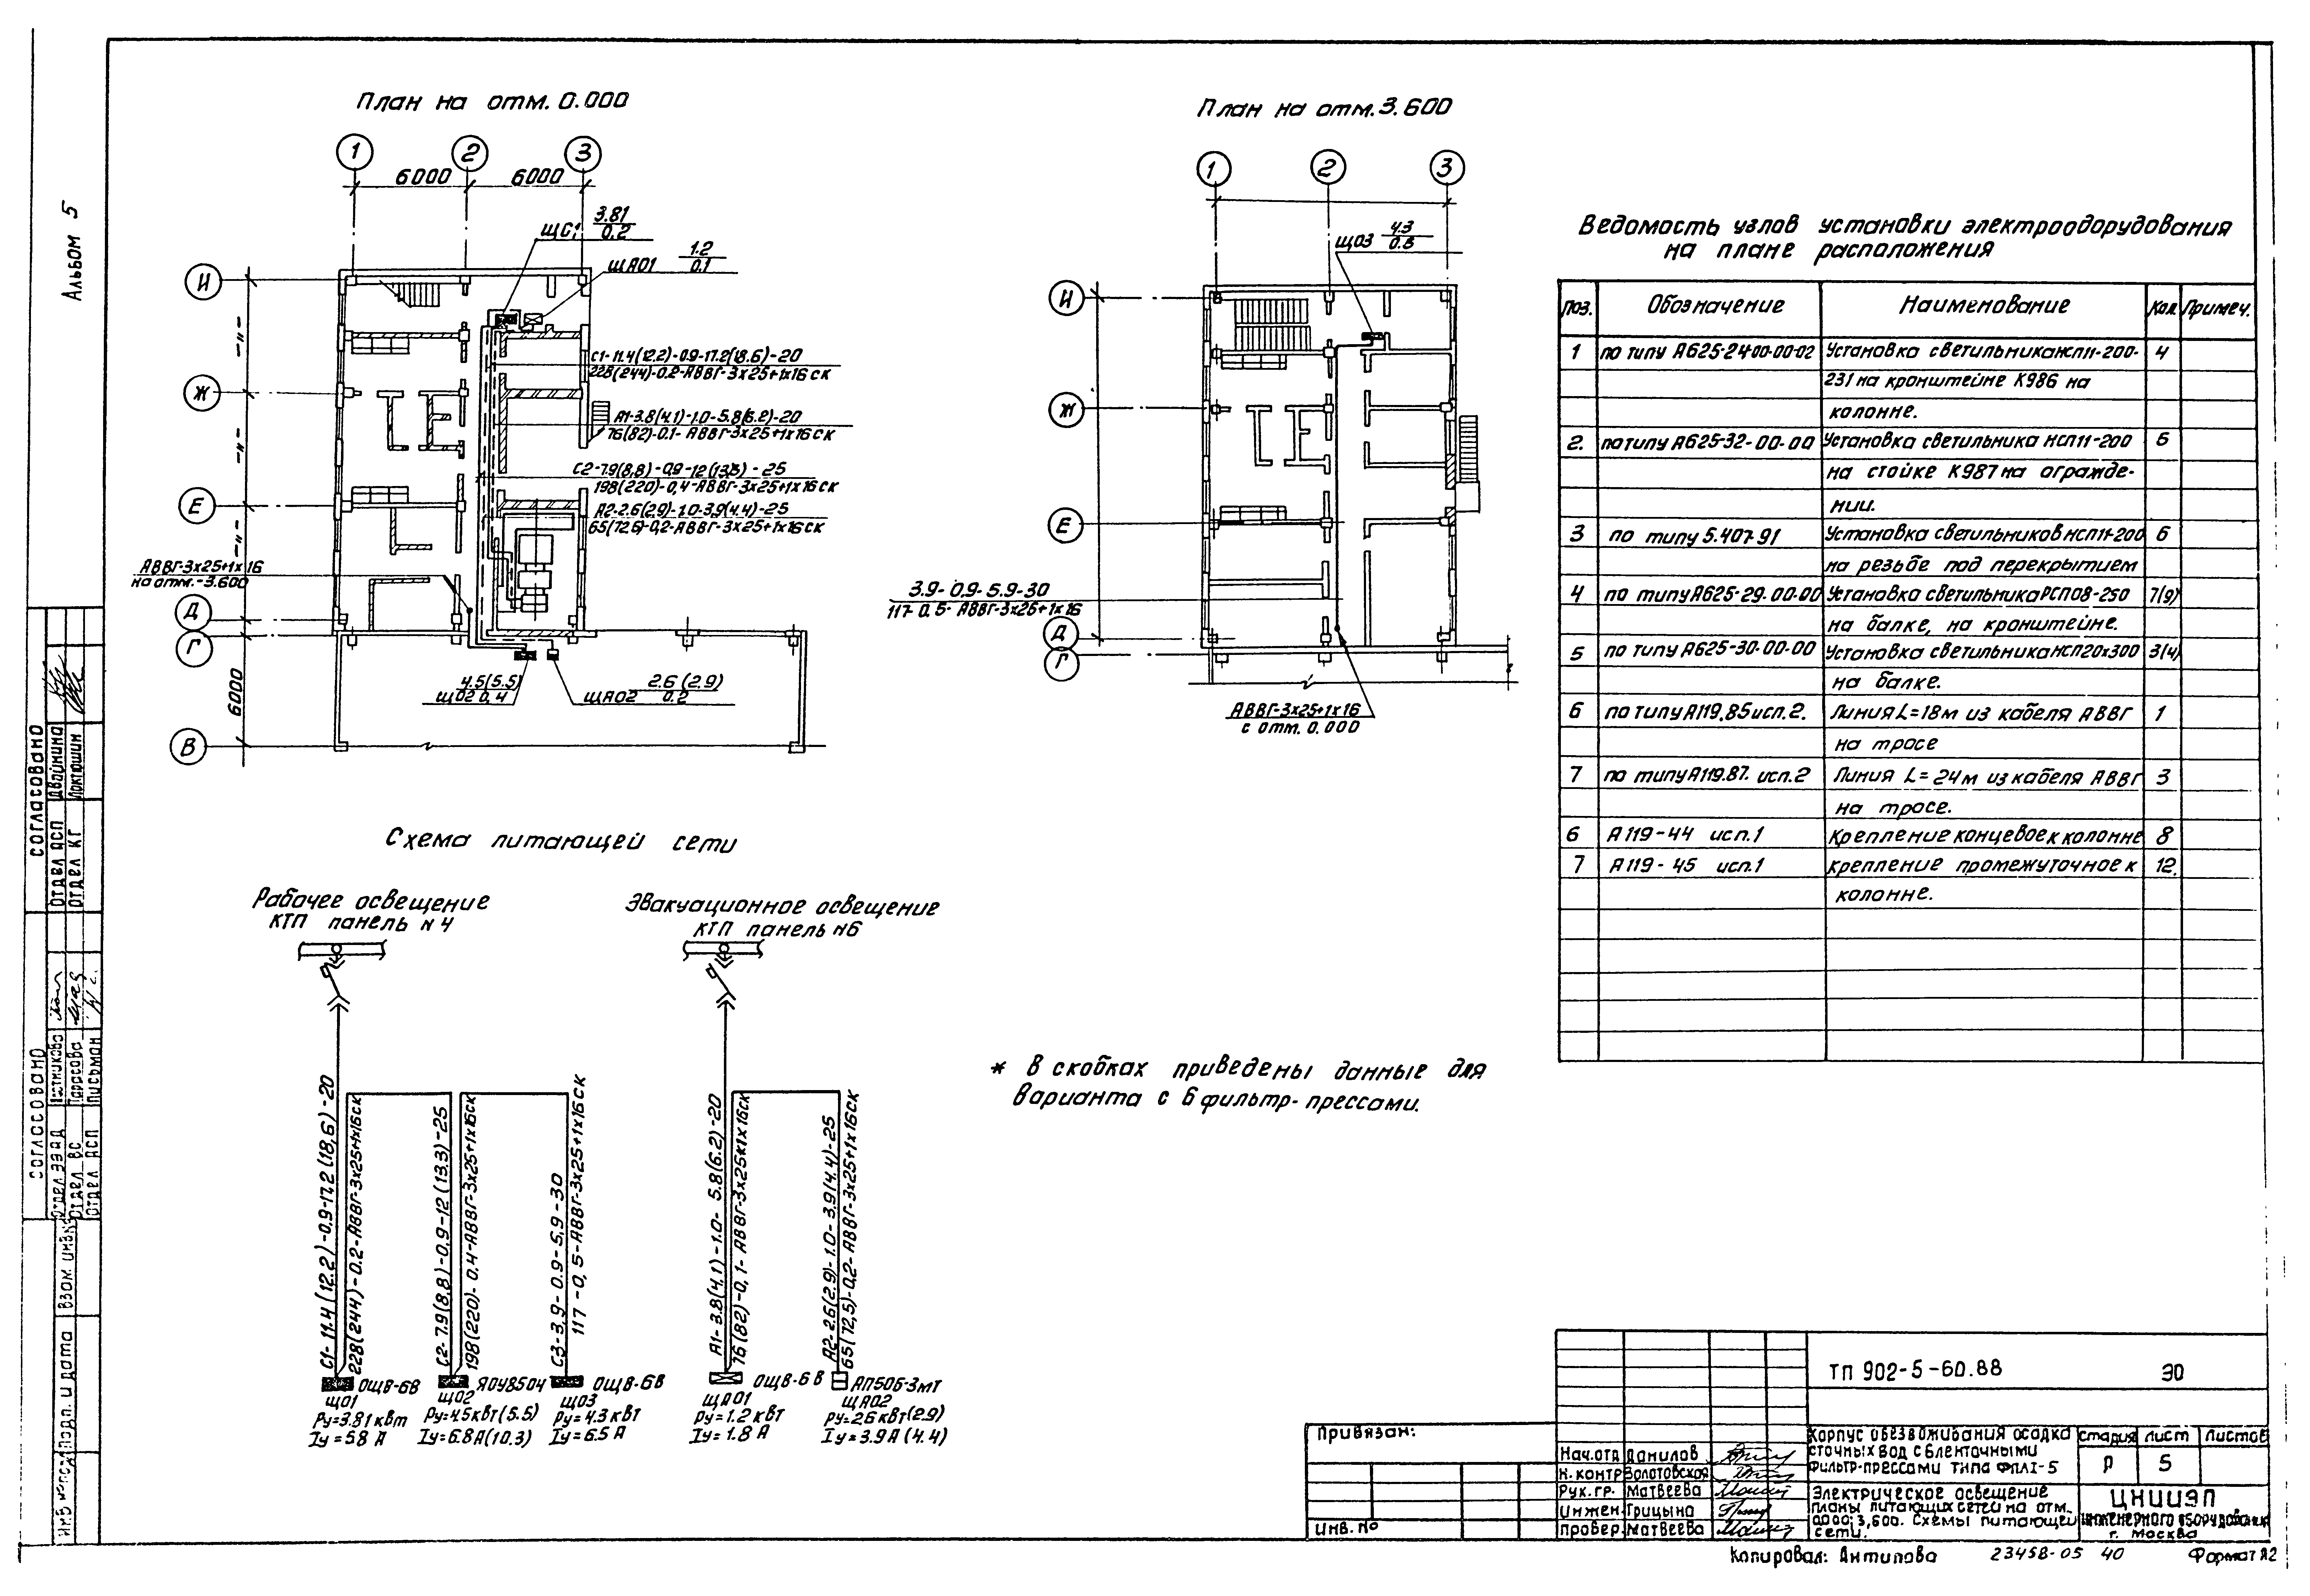 Альбом 5
План на отм. 0.000
1 2 3
6000 6000
ЩО1 3.81
0.2
ЩАО1 1.2
0.1
И
Ж
Е
Д
Г
В
6000
С1-11.4(12.2)-0.9-17.2(18.6)-20
228(244)-0.2-АВВГ-3х25+1х16 СК
А1-3.8(4.1)-1.0-5.8(6.2)-20
76(82)-0.1-АВВГ-3х25+1х16 СК
С2-7.9(8,8)-0,9-12(13,3)-25
198(220)-0,4-АВВГ-3х25+1х16 СК
А2-2.6(2.9)-1.0-3.9(4.4)-25
65(72.5)-0,2-АВВГ-3х25+1х16 СК
АВВГ-3х25+1х16
на отм.-3.600
4.5(5.5)
ЩО2 0.4
2.6 (2.9)
ЩАО2 0.2
План на отм. 3.600
1 2 3
ЩО3 4.3
И
Ж
Е
Д
Г
3.9-0,9-5.9-30
117-0,5-АВВГ-3х25+1х16
АВВГ-3х25+1х16
с отм. 0.000
Ведомость узлов установки электроодорудования
на плане расположения
Поз. Обозначение Наименование Кол. Примеч.
1 по типу А625-24-00-00-02 Установка светильника НСП11-200- 4
231 на кронштейне К986 на
колонне.
2. по типу А625-32-00-00 Установка светильника НСП11-200 6
на стойке К987 на огражде-
нии.
3 по типу 5.407-91 Установка светильников НСП11-200 6
на резьбе под перекрытием
4 по типу А625-29.00-00 Установка светильника РСП08-250 7(9)
на балке, на кронштейне.
5 по типу А625-30.00-00 Установка светильника НСП20х300 3(4)
на балке.
6 по типу А119.85 исп.2. Линия L=18м из кабеля АВВГ 1
на тросе
7 по типу А119.87. исп.2 Линия L=24м из кабеля АВВГ 3
на тросе.
6 А119-44 исп.1 Крепление концевое к колонне 8
7 А119-45 исп.1 крепление промежуточное к 12.
колонне.
Схема питающей сети
Рабочее освещение
КТП панель N4
Эвакуационное освещение
КТП панель N6
С1-11.4(12.2)-0.9-17.2(18,6)-20
228(244)-0.2-АВВГ-3х25+1х16СК
С2-7.9(8,8)-0,9-12(13.3)-25
198(220)-0.4-АВВГ-3х25+1х16СК
С3-3,9-0.9-5,9-30
117-0,5-АВВГ-3х25+1х16 СК
А1-3.8(4,1)-1.0-5.8(6.2)-20
76(82)-0,1-АВВГ-3х25х1х16СК
А2-2.6(2.9)-1.0-3.9(4.4)-25
65(72,5)-0.2-АВВГ-3х25+1х16СК
ОЩВ-6В
ЩО1
Ру=3.81 квт
Iу=5.8 А
ЯОУ8504
ЩО2
Ру=4.5квт(5.5)
Iу=6.8 А(10.3)
ОЩВ-6В
ЩО3
Ру=4.3 квт
Iу=6.5 А
ОЩВ-6В
ЩАО1
Ру=1.2 квт
Iу=1.8 А
АП50Б-3мт
ЩАО2
Ру=2.6 квт(2.9)
Iу=3.9А (4.4)
* В скобках приведены данные для
варианта с 6 фильтр-прессами.
Согласовано
Отдел АСП Двойнина
Отдел КГ Локтюшин
Согласовано
Отдел ВС Тарасова
Отдел АСП Письман
Взам. инв.
Подп. и дата
Привязан:
Инв. №
ТП 902-5-60.88 ЭО
Нач.отд. Данилов
Н.контр Золотовская
Рук.гр. Матвеева
Инжен. Грицына
Провер. Матвеева
Корпус обезвоживания осадка
сточных вод с 6 ленточными
фильтр-прессами типа ФПЛ1-5
Стадия Лист Листов
Р 5
Электрическое освещение
планы питающих сетей на отм.
0.000; 3,600. Схемы питающей
сети.
ЦНИИЭП
инженерного оборудования
г. Москва
Копировал: Антипова 23458-05 40 Формат А2